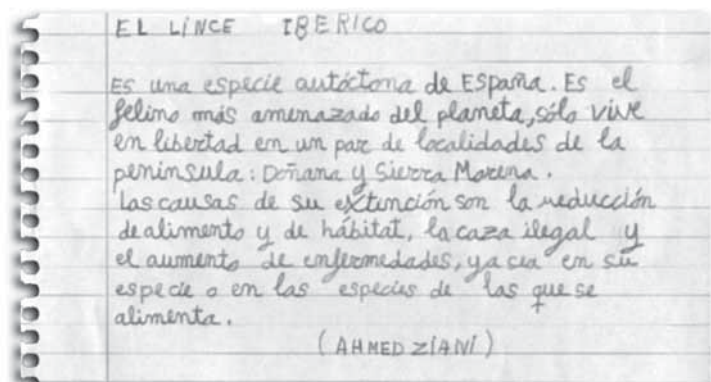 EL LÍNCE IBERICO
Es una especie autóctona de España. Es el
felino más amenazado del planeta, sólo vive
en libertad en un par de localidades de la
peninsula: Doñana y Sierra Morena.
Las causas de su extinción son la reducción
de alimento y de hábitat, la caza ilegal y
el aumento de enfermedades, ya sea en su
especie o en las especies de las que se
alimenta.
(AHMED ZIANI)